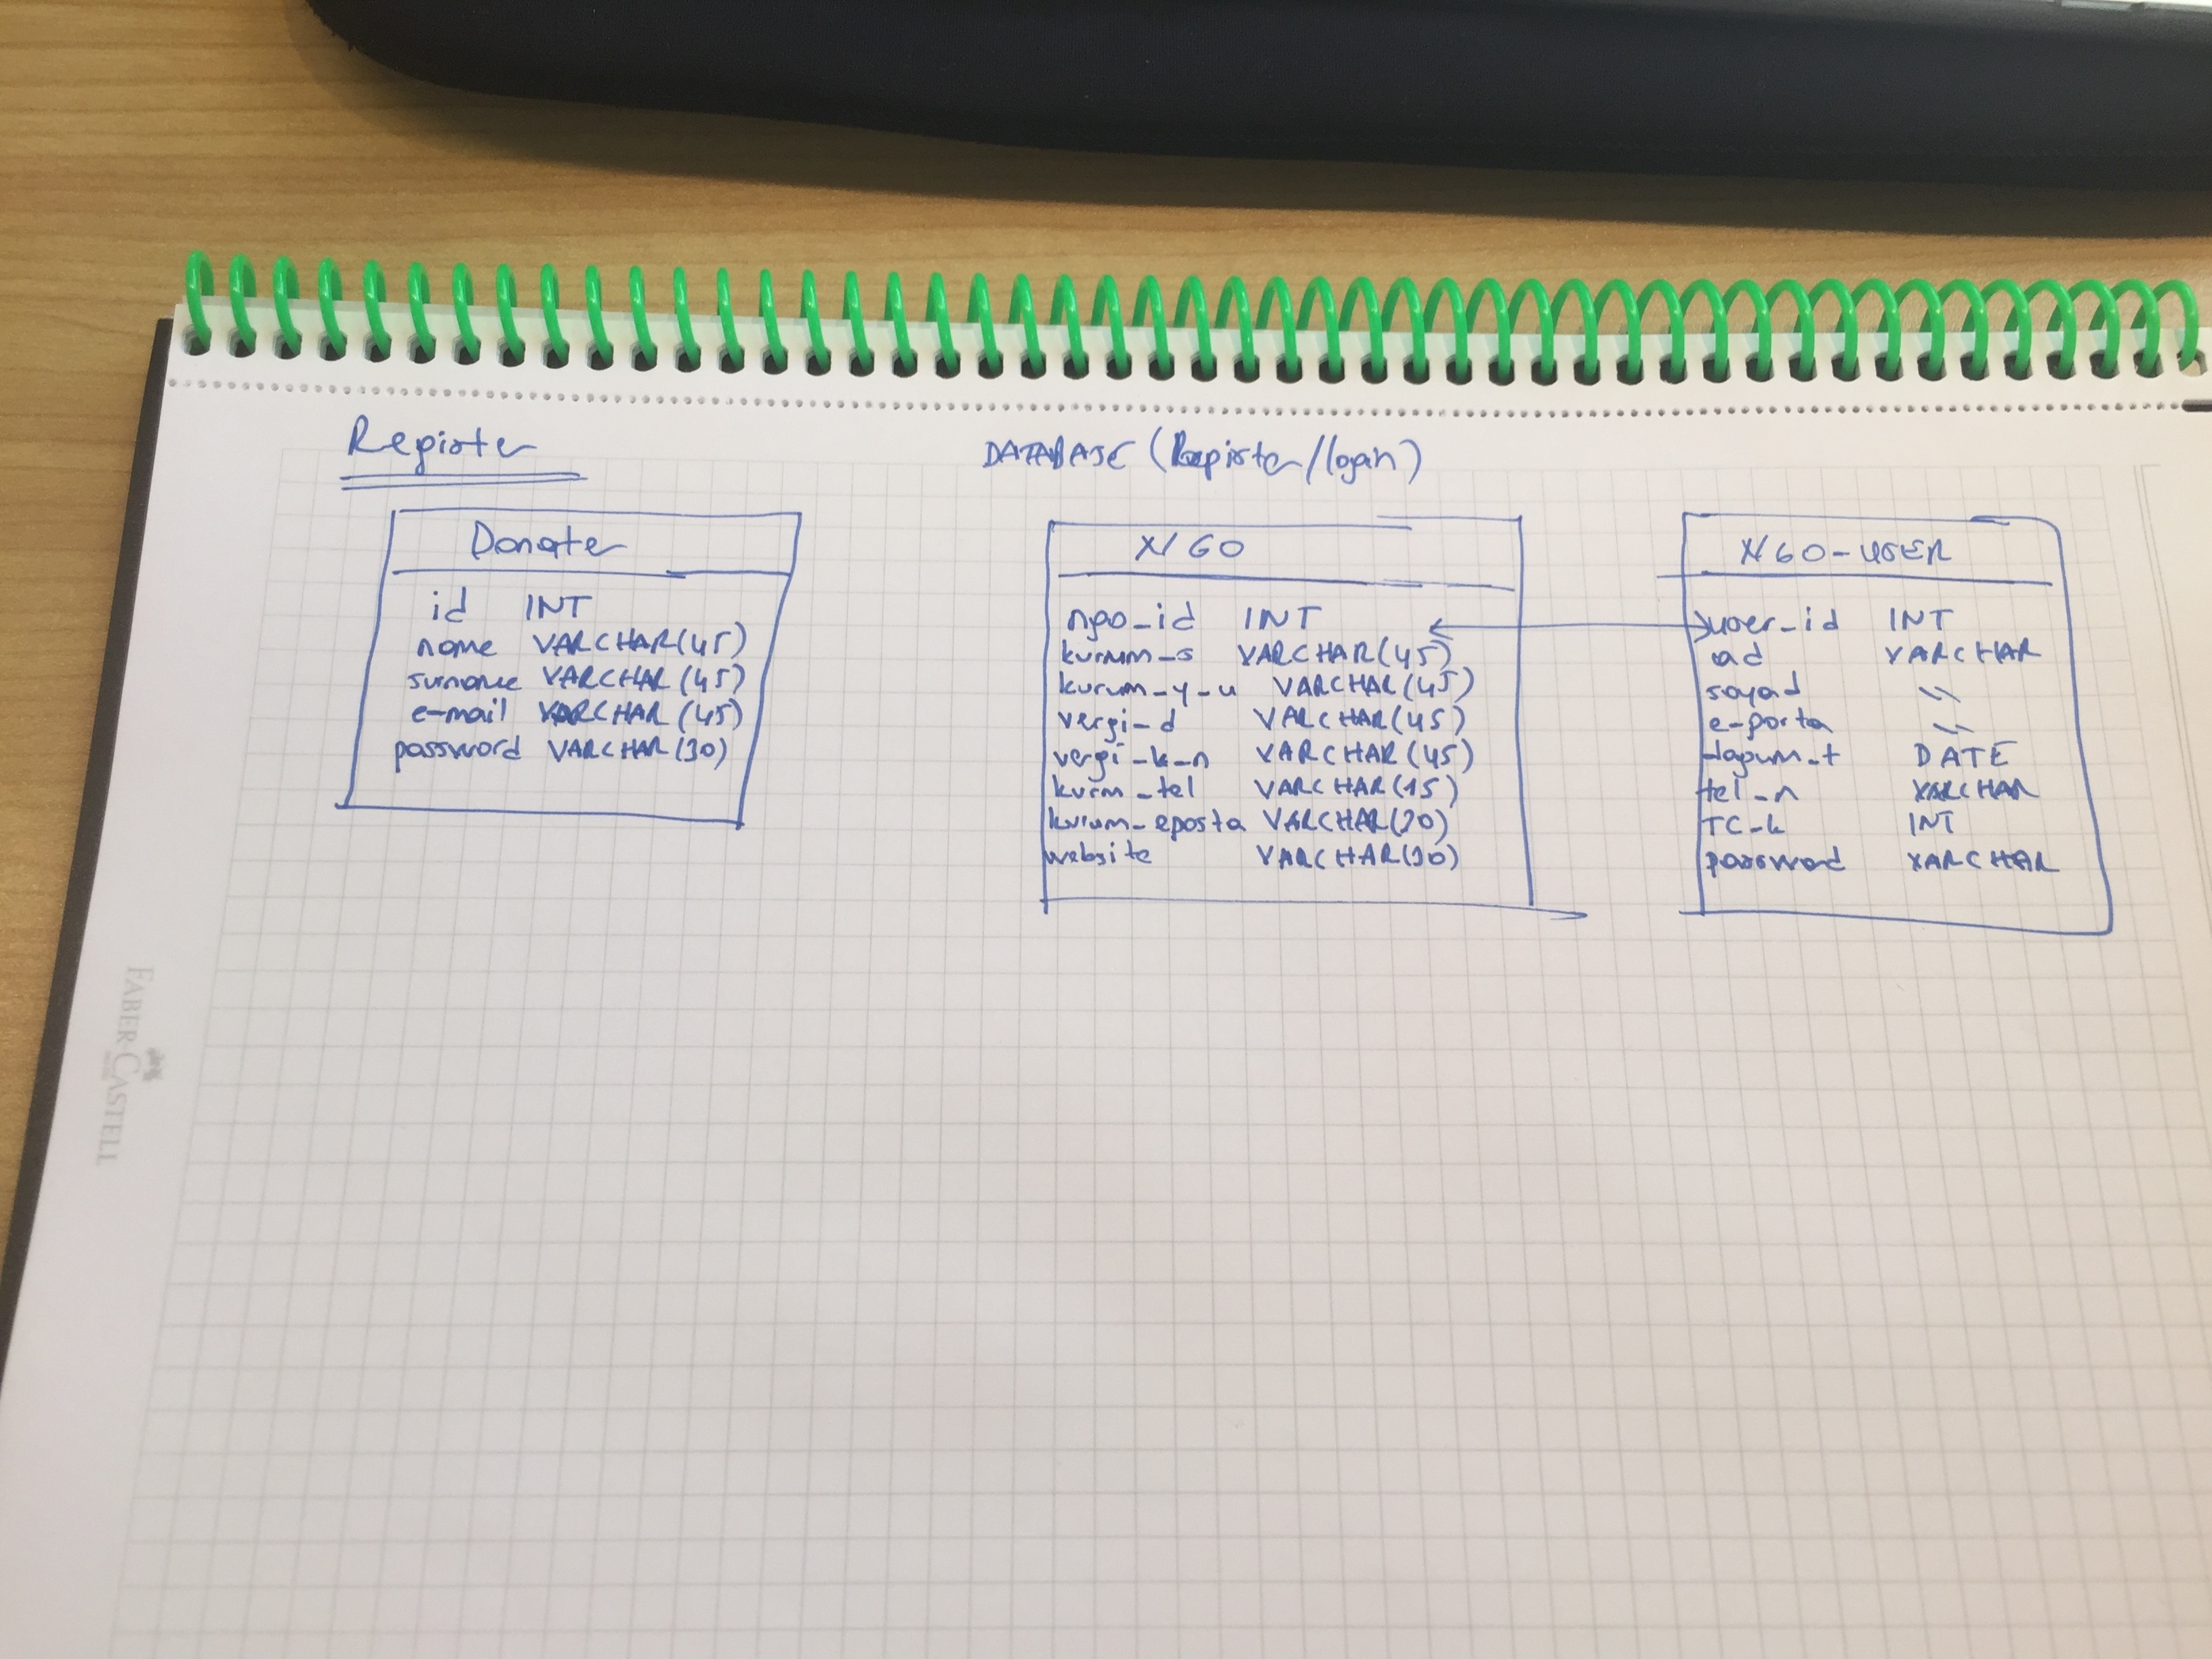 Register
DATABASE (Register/login)
Donater
id INT
name VARCHAR(45)
surname VARCHAR(45)
e-mail VARCHAR(45)
password VARCHAR(30)
NGO
ngo_id INT
kurum_s VARCHAR(45)
kurum_y_u VARCHAR(45)
vergi_d VARCHAR(45)
vergi_k_n VARCHAR(45)
kurm_tel VARCHAR(15)
kurum_eposta VARCHAR(20)
website VARCHAR(30)
NGO-USER
user_id INT
ad VARCHAR
soyad \\
e-posta \\
dogum_t DATE
tel_n VARCHAR
TC_k INT
password VARCHAR
FABER CASTELL